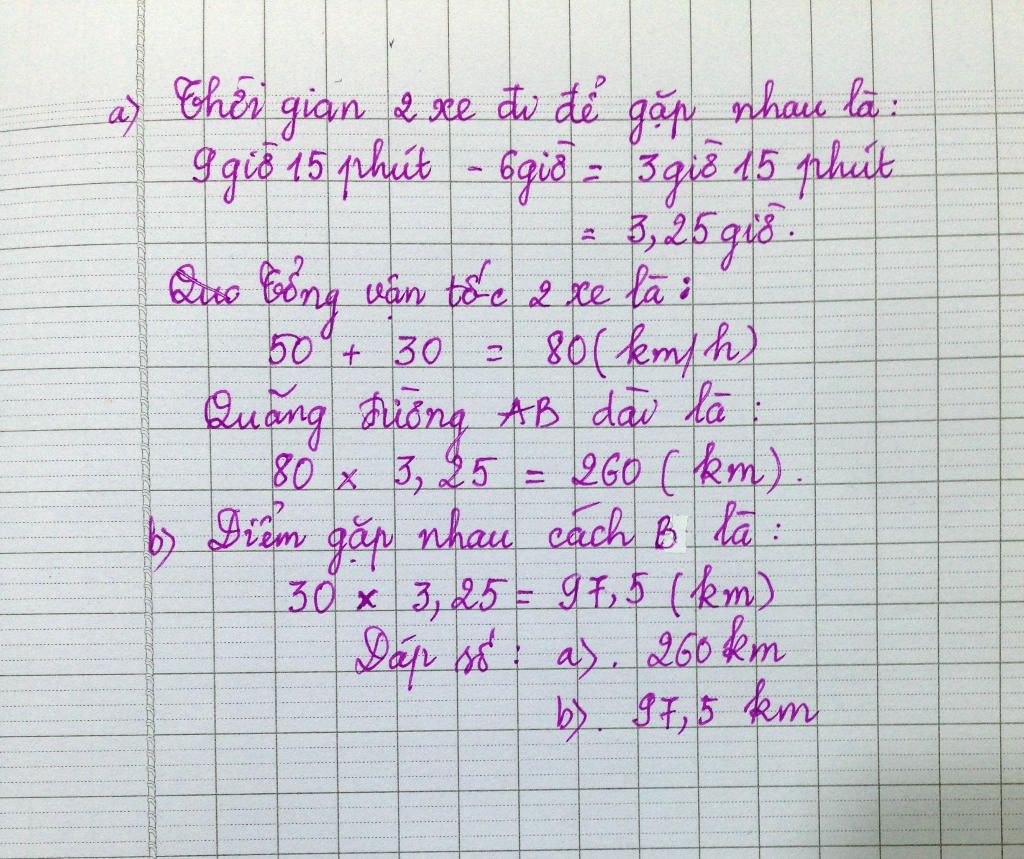 a) Thời gian 2 xe đi để gặp nhau là:
9 giờ 15 phút - 6 giờ = 3 giờ 15 phút
= 3,25 giờ.
Tổng vận tốc 2 xe là:
50 + 30 = 80 (km/h)
Quãng đường AB dài là:
80 x 3,25 = 260 (km).
b) Điểm gặp nhau cách B là:
30 x 3,25 = 97,5 (km)
Đáp số: a). 260 km
b). 97,5 km